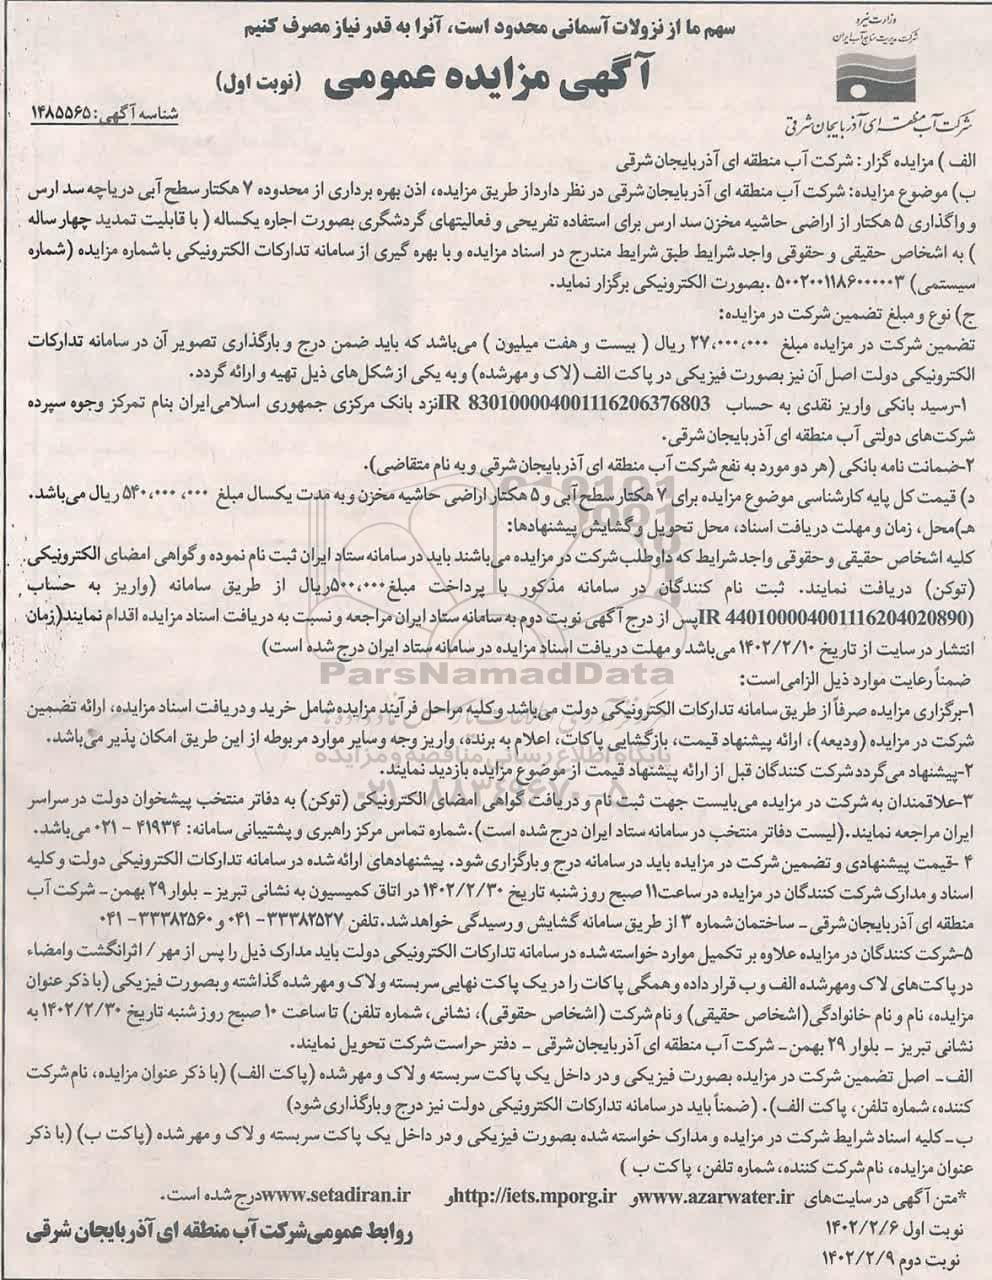 سهم ما از نزولات آسمانی محدود است، آنرا به قدر نیاز مصرف کنیم
وزارت نیرو
شرکت مدیریت منابع آب ایران
شرکت آب منطقه ای آذربایجان شرقی
آگهی مزایده عمومی (نوبت اول)
شناسه آگهی: ۱۴۸۵۵۶۵
الف ) مزایده گزار: شرکت آب منطقه ای آذربایجان شرقی
ب) موضوع مزایده: شرکت آب منطقه ای آذربایجان شرقی در نظر دارد از طریق مزایده، اذن بهره برداری از محدوده ۷ هکتار سطح آبی دریاچه سد ارس
و واگذاری ۵ هکتار از اراضی حاشیه مخزن سد ارس برای استفاده تفریحی و فعالیتهای گردشگری بصورت اجاره یکساله ( با قابلیت تمدید چهار ساله
) به اشخاص حقیقی و حقوقی واجد شرایط طبق شرایط مندرج در اسناد مزایده و با بهره گیری از سامانه تدارکات الکترونیکی با شماره مزایده (شماره
سیستمی) ۵۰۰۲۰۰۱۱۸۶۰۰۰۰۰۳ .بصورت الکترونیکی برگزار نماید.
ج) نوع و مبلغ تضمین شرکت در مزایده:
تضمین شرکت در مزایده مبلغ ۲۷،۰۰۰،۰۰۰ ریال ( بیست و هفت میلیون ) می‌باشد که باید ضمن درج و بارگذاری تصویر آن در سامانه تدارکات
الکترونیکی دولت اصل آن نیز بصورت فیزیکی در پاکت الف (لاک و مهرشده) و به یکی از شکل‌های ذیل تهیه و ارائه گردد.
۱-رسید بانکی واریز نقدی به حساب IR 830100004001116206376803نزد بانک مرکزی جمهوری اسلامی‌ایران بنام تمرکز وجوه سپرده
شرکت‌های دولتی آب منطقه ای آذربایجان شرقی.
۲-ضمانت نامه بانکی (هر دو مورد به نفع شرکت آب منطقه ای آذربایجان شرقی و به نام متقاضی).
د) قیمت کل پایه کارشناسی موضوع مزایده برای ۷ هکتار سطح آبی و ۵ هکتار اراضی حاشیه مخزن و به مدت یکسال مبلغ ۵۴۰،۰۰۰،۰۰۰ ریال می‌باشد.
هـ)محل، زمان و مهلت دریافت اسناد، محل تحویل و گشایش پیشنهادها:
کلیه اشخاص حقیقی و حقوقی واجد شرایط که داوطلب شرکت در مزایده می‌باشند باید در سامانه ستاد ایران ثبت نام نموده و گواهی امضای الکترونیکی
(توکن) دریافت نمایند. ثبت نام کنندگان در سامانه مذکور با پرداخت مبلغ۵۰۰،۰۰۰ریال از طریق سامانه (واریز به حساب
IR 440100004001116204020890)پس از درج آگهی نوبت دوم به سامانه ستاد ایران مراجعه و نسبت به دریافت اسناد مزایده اقدام نمایند(زمان
انتشار در سایت از تاریخ ۱۴۰۲/۲/۱۰ می‌باشد و مهلت دریافت اسناد مزایده در سامانه ستاد ایران درج شده است)
ضمناً رعایت موارد ذیل الزامی‌است:
۱-برگزاری مزایده صرفاً از طریق سامانه تدارکات الکترونیکی دولت می‌باشد و کلیه مراحل فرآیند مزایده شامل خرید و دریافت اسناد مزایده، ارائه تضمین
شرکت در مزایده (ودیعه)، ارائه پیشنهاد قیمت، بازگشایی پاکات، اعلام به برنده، واریز وجه و سایر موارد مربوطه از این طریق امکان پذیر می‌باشد.
۲-پیشنهاد می‌گردد شرکت کنندگان قبل از ارائه پیشنهاد قیمت از موضوع مزایده بازدید نمایند.
۳-علاقمندان به شرکت در مزایده می‌بایست جهت ثبت نام و دریافت گواهی امضای الکترونیکی (توکن) به دفاتر منتخب پیشخوان دولت در سراسر
ایران مراجعه نمایند.(لیست دفاتر منتخب در سامانه ستاد ایران درج شده است).شماره تماس مرکز راهبری و پشتیبانی سامانه: ۴۱۹۳۴ - ۰۲۱ می‌باشد.
۴ -قیمت پیشنهادی و تضمین شرکت در مزایده باید در سامانه درج و بارگزاری شود. پیشنهادهای ارائه شده در سامانه تدارکات الکترونیکی دولت و کلیه
اسناد و مدارک شرکت کنندگان در مزایده در ساعت۱۱ صبح روز شنبه تاریخ ۱۴۰۲/۲/۳۰ در اتاق کمیسیون به نشانی تبریز - بلوار ۲۹ بهمن- شرکت آب
منطقه ای آذربایجان شرقی - ساختمان شماره ۳ از طریق سامانه گشایش و رسیدگی خواهد شد.تلفن ۳۳۳۸۲۵۲۷- ۰۴۱ و ۳۳۳۸۲۵۶۰- ۰۴۱
۵-شرکت کنندگان در مزایده علاوه بر تکمیل موارد خواسته شده در سامانه تدارکات الکترونیکی دولت باید مدارک ذیل را پس از مهر / اثرانگشت وامضاء
در پاکت‌های لاک ومهرشده الف و ب قرار داده و همگی پاکات را در یک پاکت نهایی سربسته و لاک و مهر شده گذاشته و بصورت فیزیکی (با ذکر عنوان
مزایده، نام و نام خانوادگی(اشخاص حقیقی) و نام شرکت (اشخاص حقوقی)، نشانی، شماره تلفن) تا ساعت ۱۰ صبح روز شنبه تاریخ ۱۴۰۲/۲/۳۰ به
نشانی تبریز - بلوار ۲۹ بهمن- شرکت آب منطقه ای آذربایجان شرقی - دفتر حراست شرکت تحویل نمایند.
الف- اصل تضمین شرکت در مزایده بصورت فیزیکی و در داخل یک پاکت سربسته و لاک و مهر شده (پاکت الف) (با ذکر عنوان مزایده، نام شرکت
کننده، شماره تلفن، پاکت الف). (ضمناً باید در سامانه تدارکات الکترونیکی دولت نیز درج و بارگذاری شود)
ب-کلیه اسناد شرایط شرکت در مزایده و مدارک خواسته شده بصورت فیزیکی و در داخل یک پاکت سربسته و لاک و مهر شده (پاکت ب) (با ذکر
عنوان مزایده، نام شرکت کننده، شماره تلفن، پاکت ب )
*متن آگهی در سایت‌های www.azarwater.irو http://iets.mporg.irو www.setadiran.irدرج شده است.
نوبت اول ۱۴۰۲/۲/۶
نوبت دوم ۱۴۰۲/۲/۹
روابط عمومی‌شرکت آب منطقه ای آذربایجان شرقی
ParsNamadData
پایگاه اطلاع رسانی مناقصه و مزایده
۰۲۱-۸۸۳۴۹۶۷۰-۵